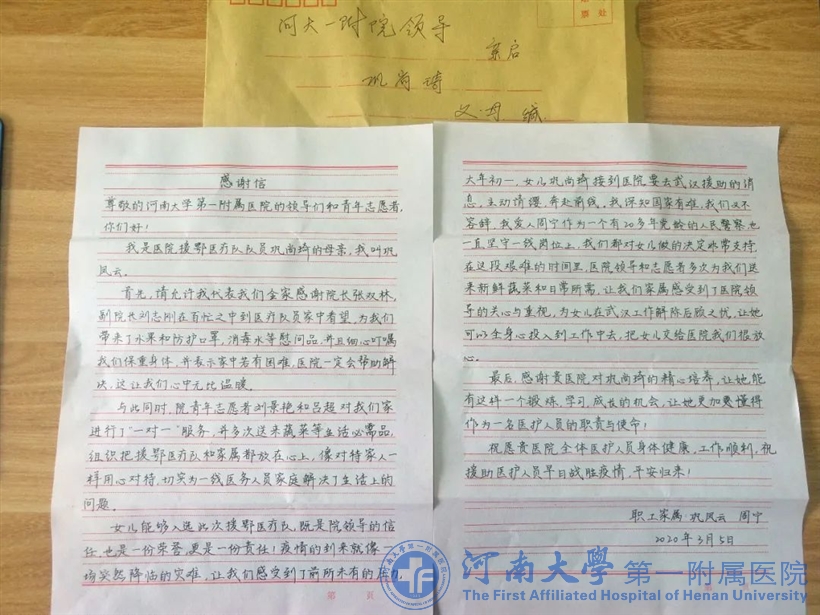 河大一附院领导
亲启
巩尚琦
父母 缄
票处
感谢信
尊敬的河南大学第一附属医院的领导们和青年志愿者,
你们好!
我是医院援鄂医疗队队员巩尚琦的母亲,我叫巩
凤云。
首先,请允许我代表我们全家感谢院长张双林,
副院长刘志刚在百忙之中到医疗队员家中看望,为我们
带来了水果和防护口罩,消毒水等慰问品,并且细心叮嘱
我们保重身体,并表示家中若有困难,医院一定会帮助解
决,这让我们心中无比温暖。
与此同时,院青年志愿者刘景艳和吕超对我们家
进行了“一对一”服务,并多次送来蔬菜等生活必需品,
组织把援鄂医疗队和家属都放在心上,像对待家人一
样用心对待,切实为一线医务人员家庭解决了生活上的
问题。
女儿能够入选此次援鄂医疗队,既是院领导的信
任,也是一份荣誉,更是一份责任!疫情的到来就像一
场突然降临的灾难,让我们感受到了前所未有的压力,
第 页
大年初一,女儿巩尚琦接到医院要去武汉援助的消
息,主动请缨,奔赴前线,我深知国家有难,我们义不
容辞,我爱人周宁作为一个有20多年党龄的人民警察也
一直坚守一线岗位上,我们都对女儿做的决定非常支持,
在这段艰难的时间里,医院领导和志愿者多次为我们送
来新鲜蔬菜和日常所需,让我们家属感受到了医院领
导的关心与重视,为女儿在武汉工作解除后顾之忧,让她
可以全身心投入到工作中去,把女儿交给医院我们很放
心。
最后,感谢贵医院对巩尚琦的精心培养,让她能
有这样一个锻炼、学习、成长的机会,让她更加懂得
作为一名医护人员的职责与使命!
祝愿贵医院全体医护人员身体健康,工作顺利,祝
援助医护人员早日战胜疫情,平安归来!
职工家属:巩凤云 周宁
2020年3月5日
河南大学第一附属医院
The First Affiliated Hospital of Henan University